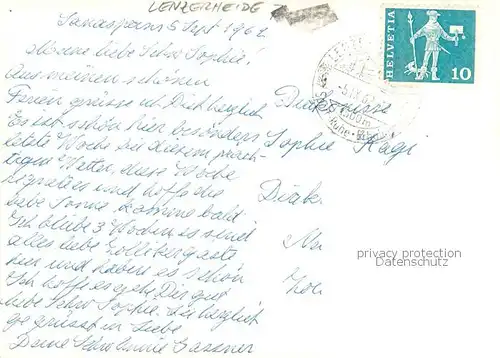 LENZERHEIDE
5 Sept 1962
Meine liebe Schw Sophie!
Aus meinen schönen
Ferien grüsse ich Dich herzlich
Es ist schön hier besonders
letzte Woche bei diesem präch-
tigen Wetter, diese Woche
und hoffe die
liebe Sonne komme bald
Ich bleibe 3 Wochen es sind
alles liebe
hier und haben es schön
Ich hoffe es gehe Dir gut
liebe Schw Sophie. Sei herzlich
gegrüsst in Liebe
Deine Schw Annie Gassner
HELVETIA
10
Diakonisse
Sophie Kägi
Diako
Ne
Zol
privacy protection
Datenschutz